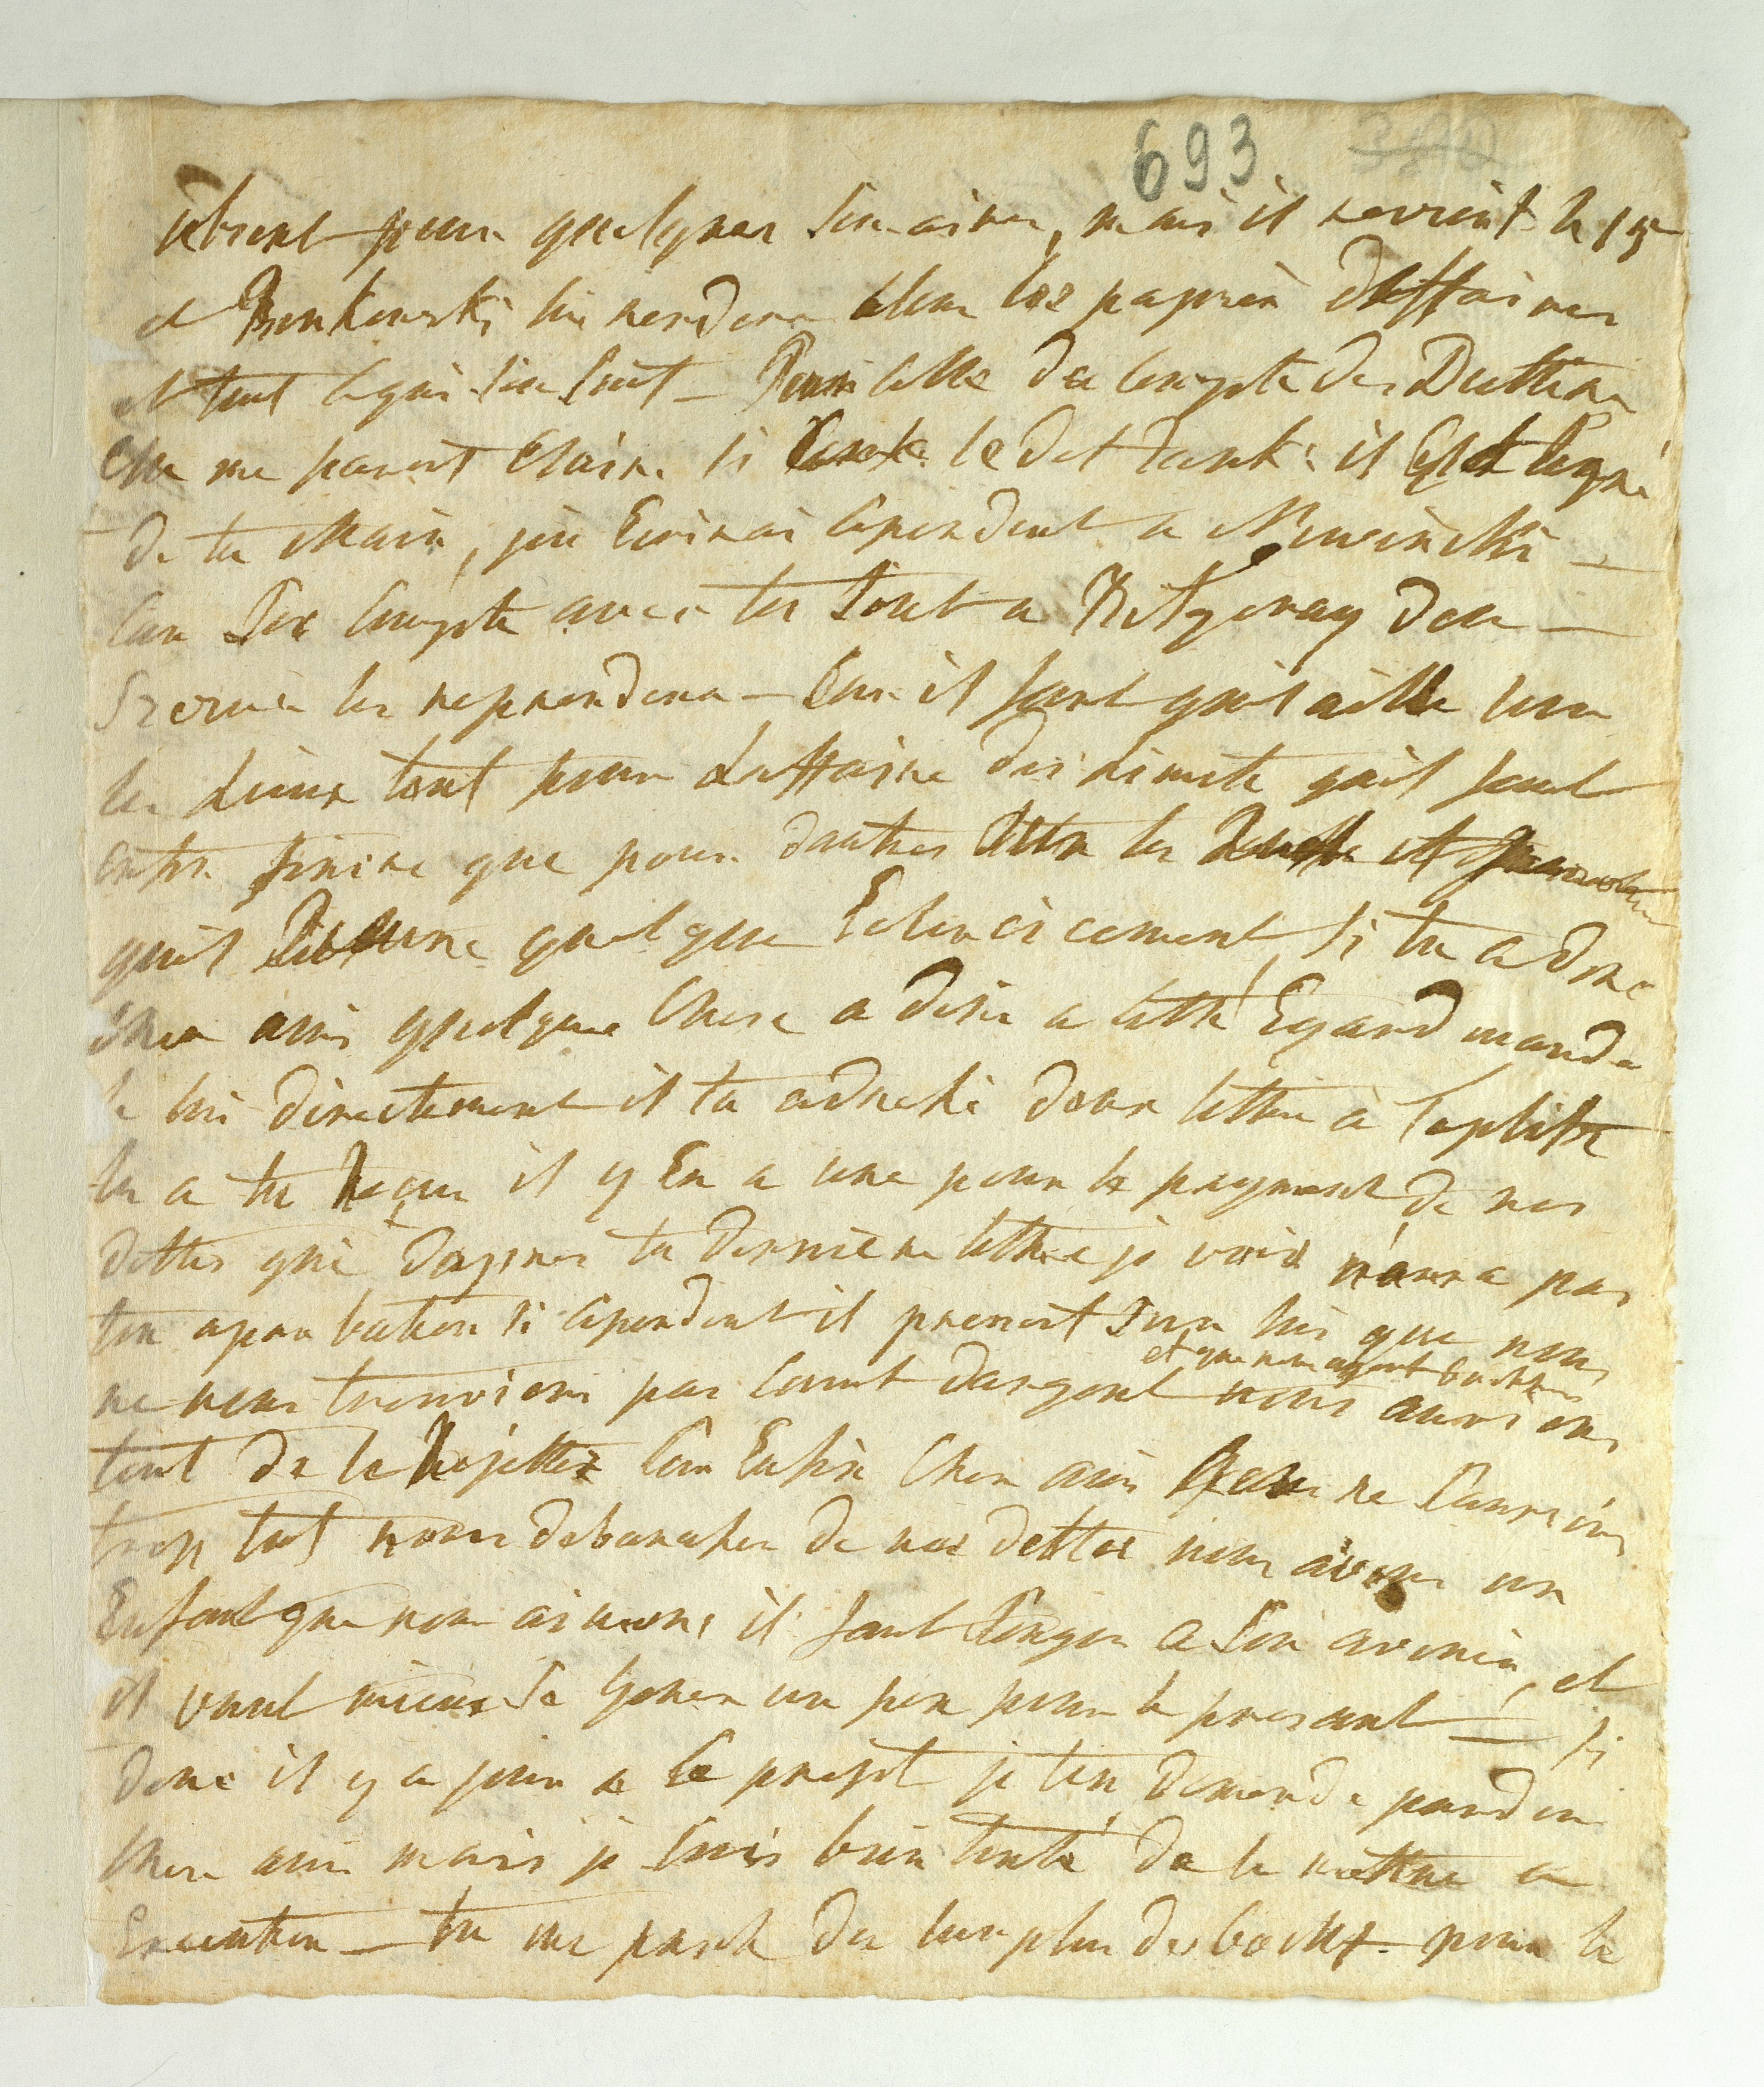 693
absent pour quelques semaines, mais il revient le 15
et Bonkowski lui rendera alors les papiers d'affaires
et tout ce qui s'en suit – Pour celle du compte des
Elle me parait Claire si le dit il est signé
de ta Main, j'en Ecrirai cependent a
Car Ses compte avec toi sont a
les reprendera – Car il faut qu'il aille sur
les Lieux tant pour L'affaire des Limite qu'il faut
enfin finire que pour dautres
qu'il quelque Eclaircicement si tu a donc
cher ami quelque Chose a dire a cette Egard mande
le lui directement il ta adressé deux lettre à Toeplitz
la a tu Reçu il y En a une pour le payment de nos
dettes qui dapres ta dernière lettre je vois n'aura pas
ton aprobation si cependent il prenoit sur lui que nous
et que
ne nous trouvions pas Court dargent nous aurions
tort de le Rejetter Car Enfin Cher ami ne saurions
trop tot nous debarasser de nos dettes nous avons un
Enfant que nous aimons il faut songer a son avenir, et
il vaut mieux se Gener un peu pour le present – si
donc il y a jour a ce projet je t'en demande pardon
Cher ami mais je suis bien tenté de le mettre a
Execution – tu me parle du surplus des pour le